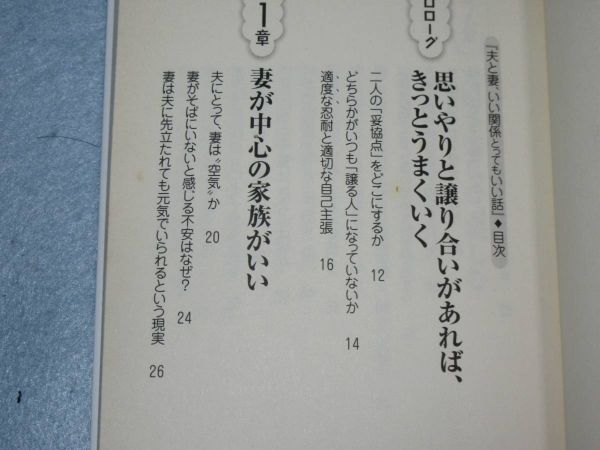 『夫と妻、いい関係とってもいい話』◆目次
ロローグ
思いやりと譲り合いがあれば、
きっとうまくいく
二人の「妥協点」をどこにするか 12
どちらかがいつも「譲る人」になっていないか 14
適度な忍耐と適切な自己主張 16
1章
妻が中心の家族がいい
夫にとって、妻は“空気”か 20
妻がそばにいないと感じる不安はなぜ? 24
妻は夫に先立たれても元気でいられるという現実 26